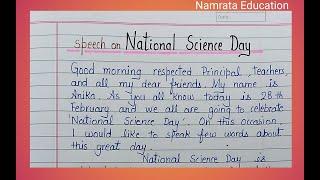 Namrata Education
Speech on National Science Day
Good morning respected Principal, teachers,
and all my dear friends. My name is
Anika. As you all know today is 28th
February and we all are going to celebrate
'National Science Day'. On this occasion,
I would like to speak few words about
this great day.
National Science Day is